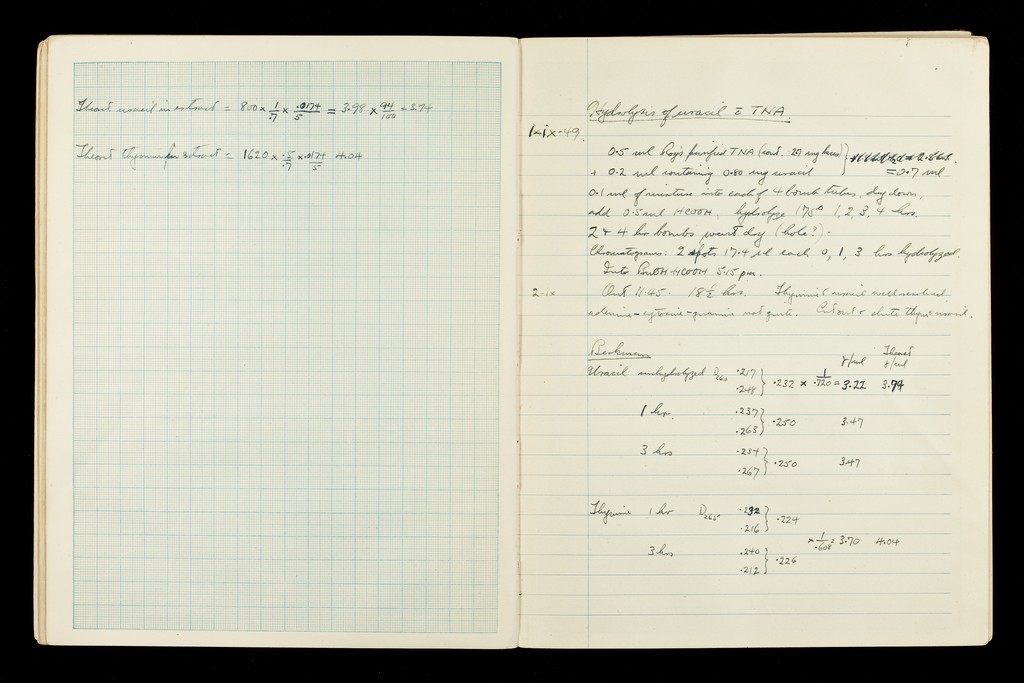 Theoret uracil in extract = 800 × 1/.7 × .0174/5 = 3.98 × 94/100 = 3.74
Theoret thymine in extract = 1620 × .5/.7 × .0174/5 4.04
Hydrolysis of uracil c̄ TNA.
1-ix-49.
0.5 ml Roy's purified TNA (cont. 27 mg bases) }
+ 0.2 ml containing 0.80 mg uracil = 0.7 ml
0.1 ml of mixture into each of 4 bomb tubes, dry down,
add 0.5 ml HCOOH, hydrolyze 175° 1, 2, 3, 4 hrs.
2 & 4 hr bombs went dry (hole?).
Chromatograms: 2 spots 17.4 ul each 0, 1, 3 hrs hydrolyzed.
Into BuOH-HCOOH 5.15 pm.
2-ix Out 11.45. 18½ hrs. Thymine & uracil well resolved
adenine-cytosine-guanine not quite. Cut out & elute thym & uracil.
Beckman γ/ml Theoret γ/ml
Uracil unhydrolyzed D260 .217
.248 } .232 × 1/.720 = 3.22 3.74
1 hr. .237
.263 } .250 3.47
3 hrs .234
.267 } .250 3.47
Thymine 1 hr D265 .232
.216 } .224
× 1/.608 = 3.70 4.04
3 hrs .240
.212 } .226